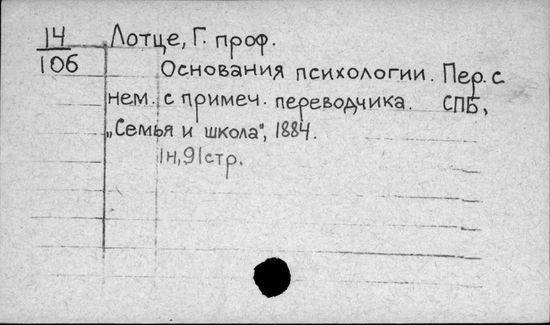 14 Лотце, Г. проф.
106
Основания психологии. Пер. с
нем. с примеч. переводчика. СПБ,
„Семья и школа", 1884.
1н, 91 стр.